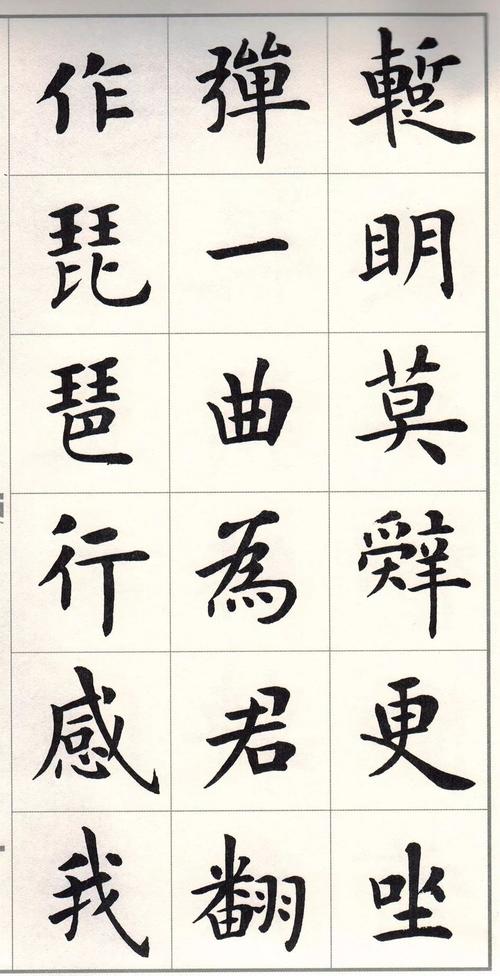 蹔明莫辭更坐
彈一曲為君翻
作琵琶行感我